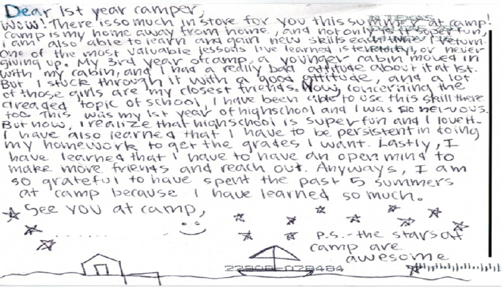 Dear 1st year camper,
WOW! There is so much in store for you this summer at camp!
Camp is my home away from home, and not only is it super fun,
i am also able to learn and gain new skills each time I return
One of the most valuable lessons I've learned is tenacity, or never
giving up. My 3rd year of camp, a younger cabin moved in
with my cabin, and I had a really bad attitude about it at 1st.
But I stuck through it with a good attitude, and a lot
of those girls are my closest friends. Now, concerning the
dreaded topic of school, I have been able to use this skill there
too. This was my 1st year of highschool and I was so nervous.
But now, i realize that highschool is super fun and I love it.
I have also learned that I have to be persistent in doing
my homework to get the grades I want. Lastly, I
have learned that I have to have an open mind to
make more friends and reach out. Anyways, I am
so grateful to have spent the past 5 summers
at camp because I have learned so much.
See you at camp,
p.s. - the stars at
camp are
awesome